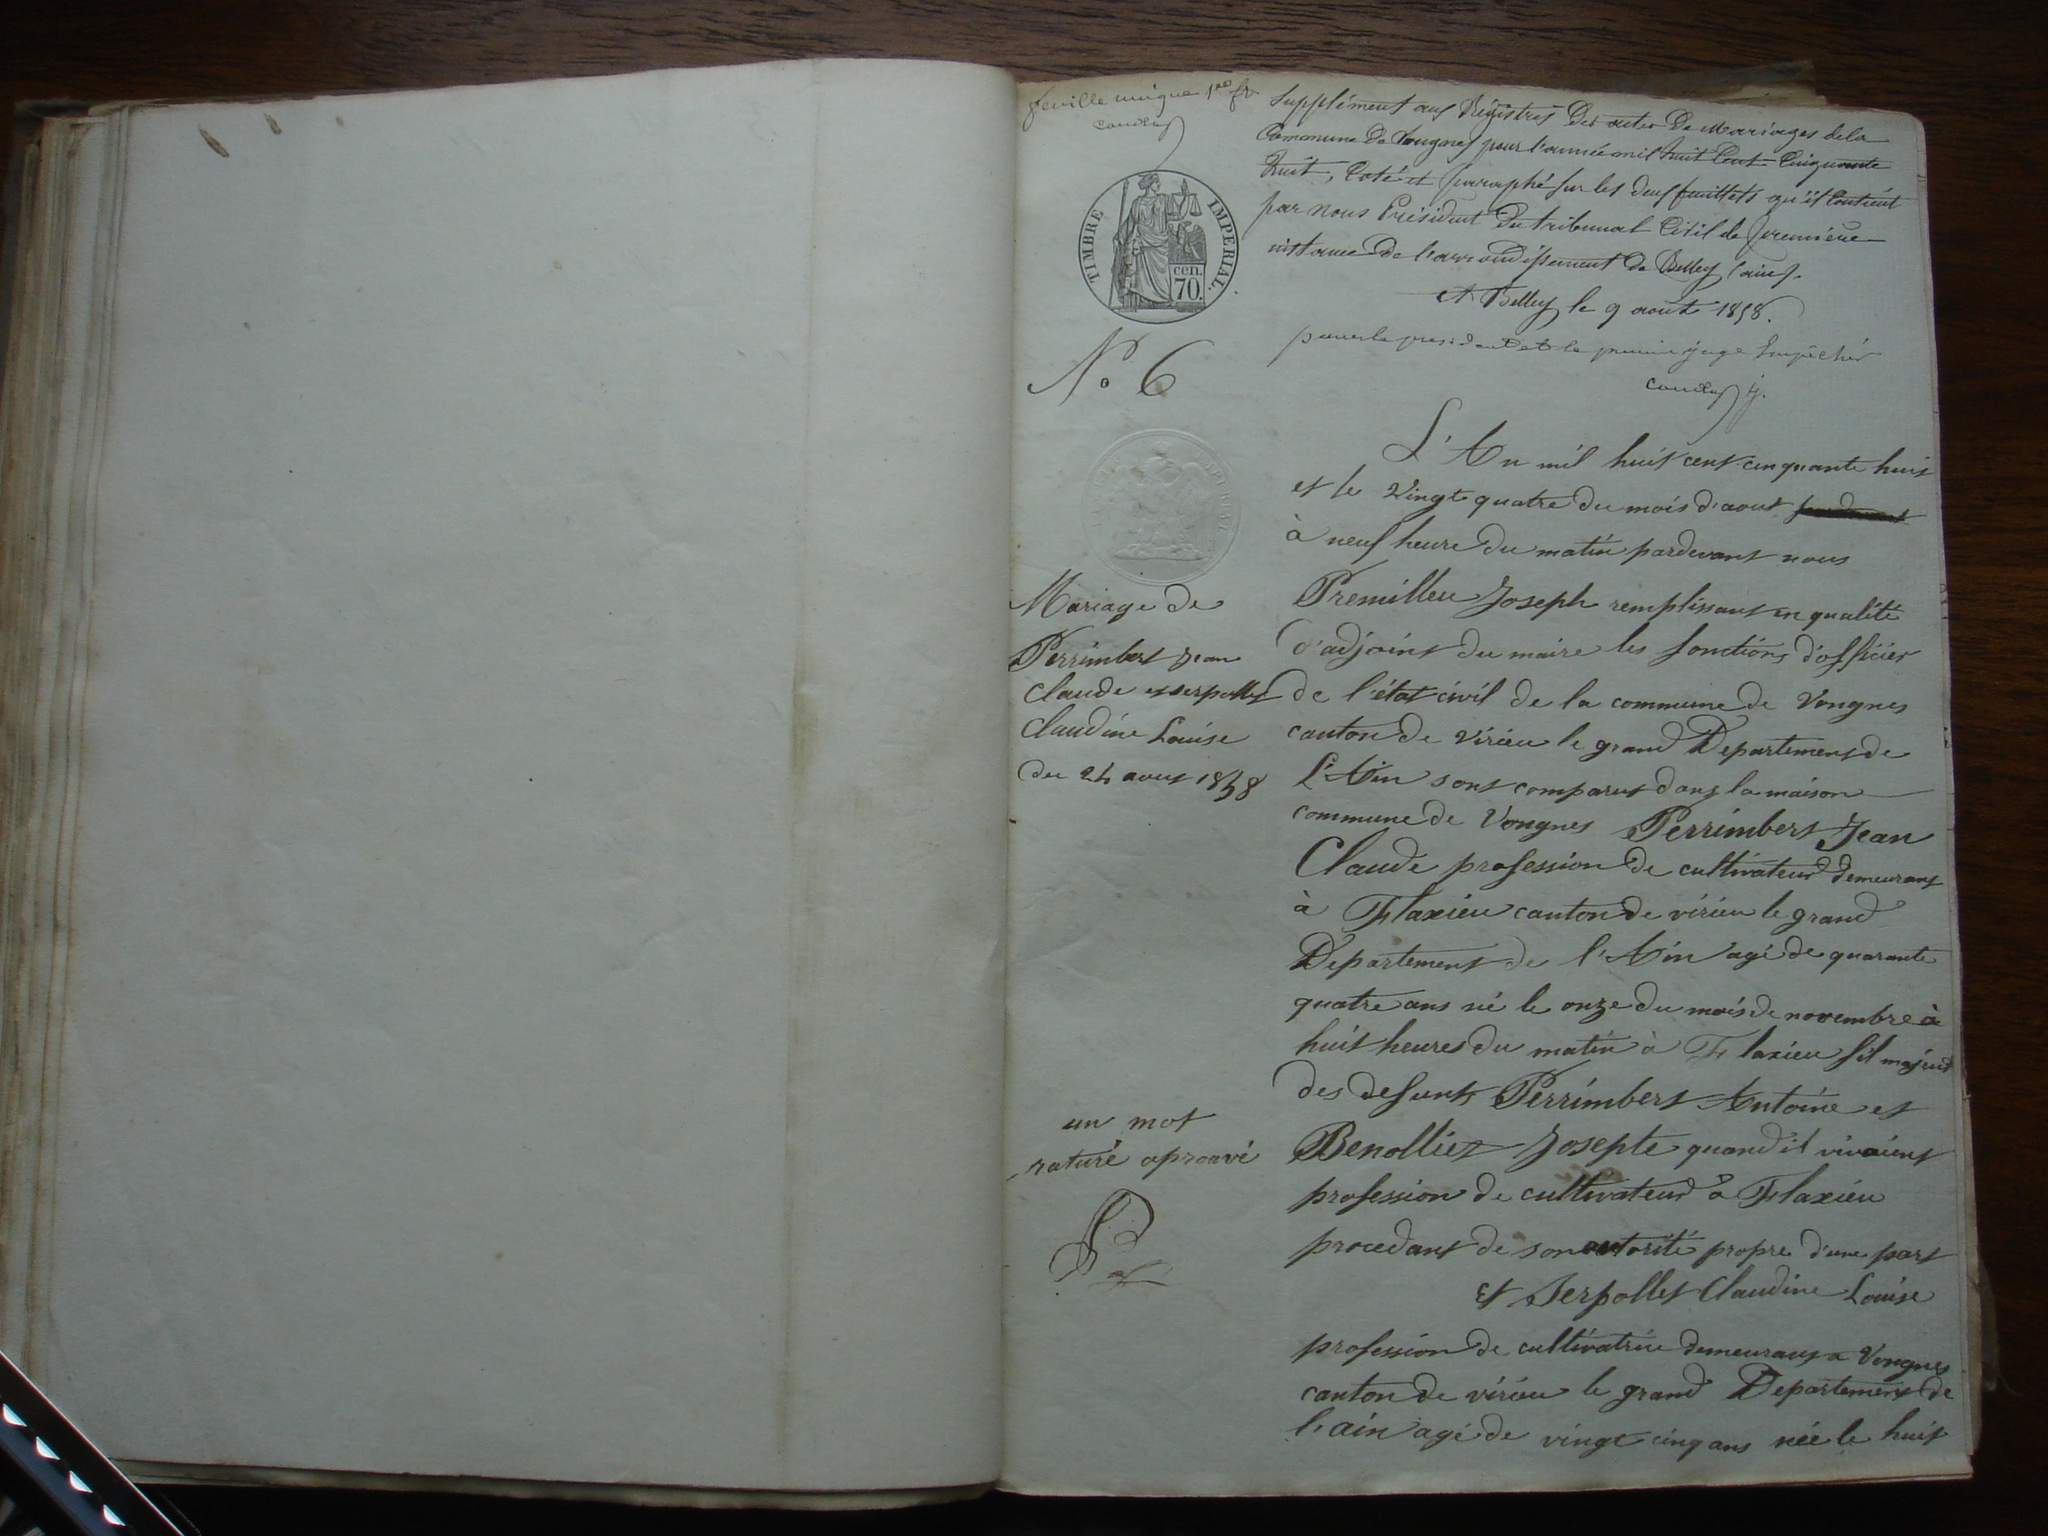 feuille unique 1re fo
TIMBRE IMPERIAL.
cen.
70.
N° 6
Mariage de
Perrimbert Jean
Claude et serpollet
Claudine Louise
du 24 aout 1858
un mot
raturé aprouvé
Supplément aux Régistres des actes de Mariages de la
Commune de Vongnes pour l'année mil huit Cent Cinquante
Huit, Coté et paraphé sur les deux feuillets qu'il Contient
par nous Président du tribunal Civil de première
instance de l'arrondissement de Belley (ain).
A Belley le 9 août 1858.
pour le president et le premier juge Empêchés
L'An mil huit cent cinquante huit
et le vingt quatre du mois d'aout
à neuf heure du matin pardevant nous
Premilleu Joseph remplissant en qualité
d'adjoint du maire les fonctions d'officier
de l'état civil de la commune de Vongnes
canton de virieu le grand Departement de
L'Ain sont comparut dans la maison
commune de Vongnes Perrimbert Jean
Claude profession de cultivateur demeurant
à Flaxieu canton de virieu le grand
Departement de l'Ain agé de quarante
quatre ans né le onze du mois de novembre à
huit heures du matin à Flaxieu fil majeur
des defunts Perrimbert Antoine et
Benolliet Josepte quand il vivaient
profession de cultivateur à Flaxieu
procedant de son autorité propre d'une part
et Serpollet Claudine Louise
profession de cultivatrice demeurant a Vongnes
canton de virieu le grand Departement de
l'ain agé de vingt cinq ans née le huit